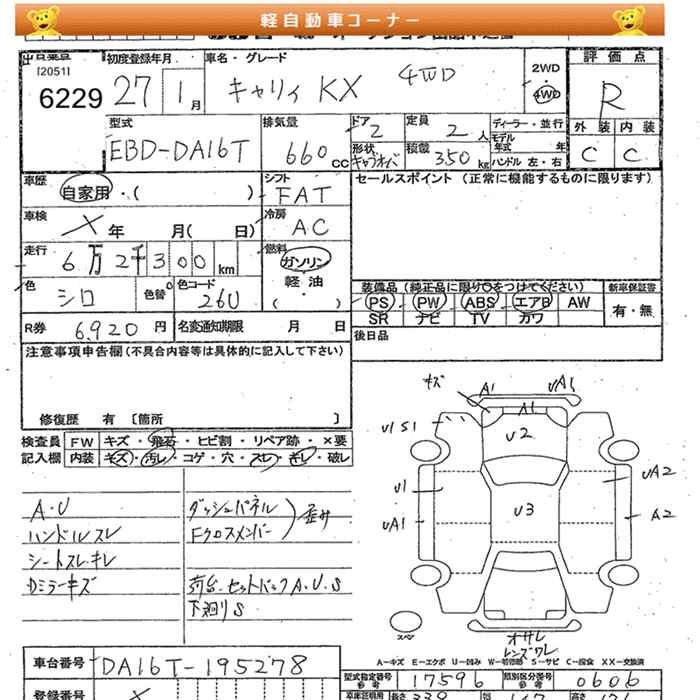 軽自動車コーナー
出品番号 初度登録年月 車名・グレード 2WD 評価点
[2051]
6229 27 1月 キャリィ KX 4WD 4WD R
型式 排気量 ドア 定員 ディーラー・並行 外装 内装
EBD-DA16T 660cc 2 2人 モデル年式 年 C C
形状 キャブオーバ 積載 350kg ハンドル 左・右
車歴 シフト セールスポイント(正常に機能するものに限ります)
自家用・( ) FAT
車検 冷房
X年 月( 日) AC
走行 燃料
6万2千300km ガソリン
軽油
( )
色 色替 色コード 装備品(純正品に限り○をつけてください) 新車保証書
シロ 26U PS PW ABS エアB AW 有・無
SR ナビ TV カワ
R券 6,920円 名変通知期限 月 日 後日品
注意事項申告欄(不具合内容等は具体的に記入して下さい)
修復歴 有 〔箇所 〕
検査員 FW キズ・飛石・ヒビ割・リペア跡・×要
記入欄 内装 キズ・汚レ・コゲ・穴・スレ・キレ・破レ
A・U
ハンドルスレ
シートスレキレ
Dミラーキズ
ダッシュパネル
Fクロスメンバー
歪み
荷台、セットバックA.U.S
下廻りS
キズ A1 UA1
A1
U1 S1 U2
U1 UA2
UA1 U3 A2
スペア オサレ
レンズワレ
A-キズ E-エクボ U-凹み W-補修跡 S-サビ C-腐食 XX-交換済
車台番号 DA16T-195278 型式指定番号 参考 17596 類別区分番号 参考 0606
登録番号 X